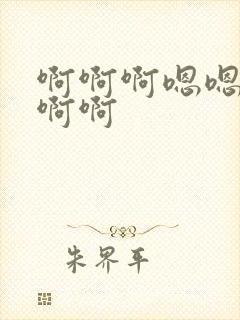 啊啊啊嗯嗯
啊啊
朱界平